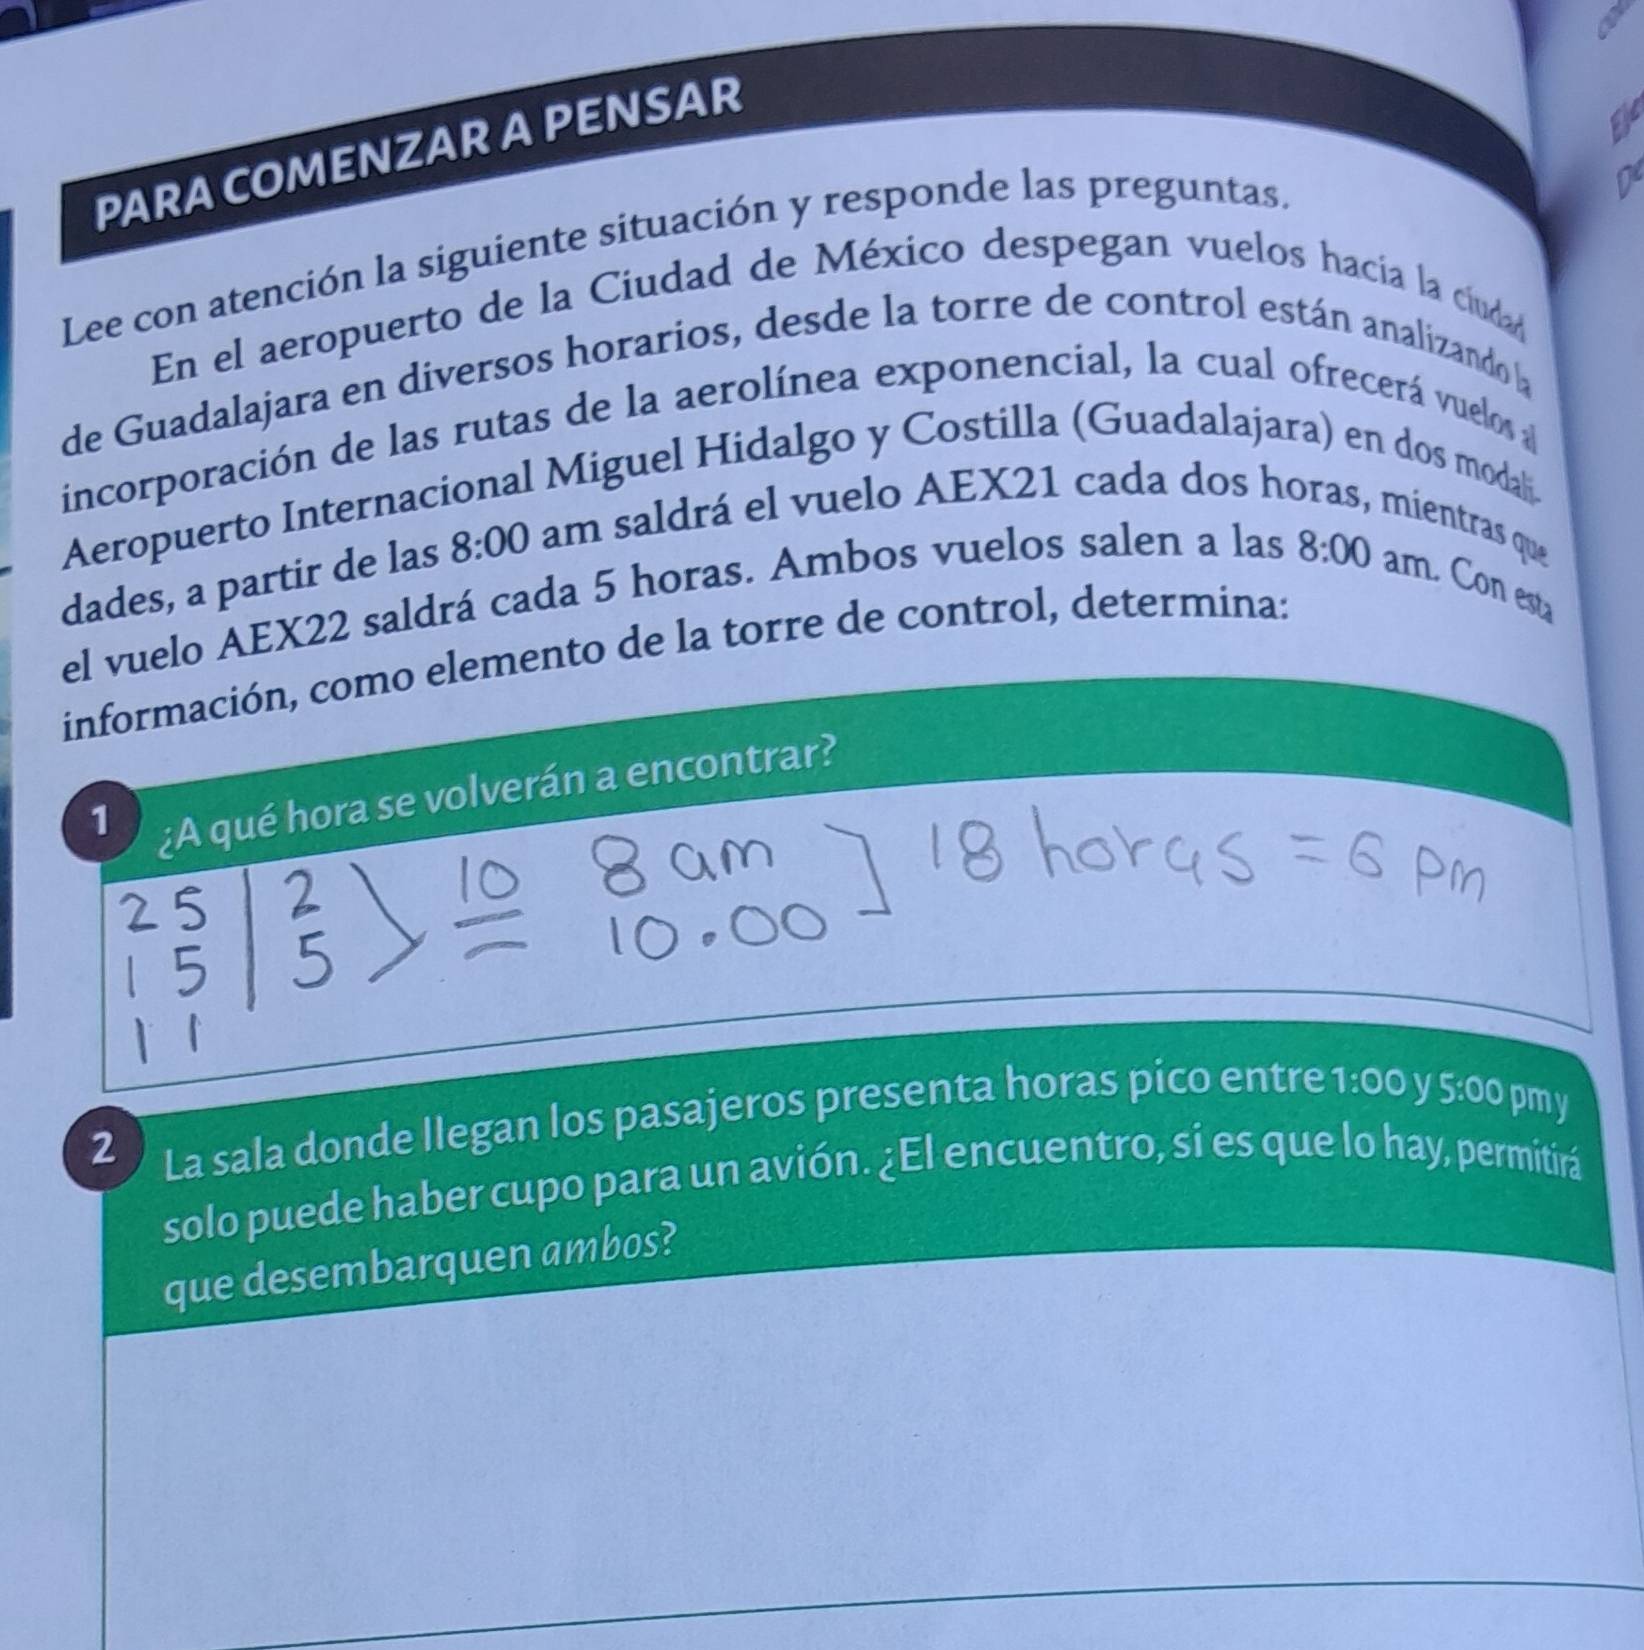 PARA COMENZAR A PENSAR
Lee con atención la siguiente situación y responde las preguntas.
En el aeropuerto de la Ciudad de México despegan vuelos hacia la ciudad
de Guadalajara en diversos horarios, desde la torre de control están analizando la
incorporación de las rutas de la aerolínea exponencial, la cual ofrecerá vuelos al
Aeropuerto Internacional Miguel Hidalgo y Costilla (Guadalajara) en dos modali-
dades, a partir de las 8:00 am saldrá el vuelo AEX21 cada dos horas, mientras que
el vuelo AEX22 saldrá cada 5 horas. Ambos vuelos salen a las 8:00 am. Con esta
información, como elemento de la torre de control, determina:
1 ¿A qué hora se volverán a encontrar?
2 5 | 2 > 10 8 am ] 18 horas = 6 pm
1 5 | 5 10.00
1 1
2 La sala donde llegan los pasajeros presenta horas pico entre 1:00 y 5:00 pm y
solo puede haber cupo para un avión. ¿El encuentro, si es que lo hay, permitirá
que desembarquen ambos?